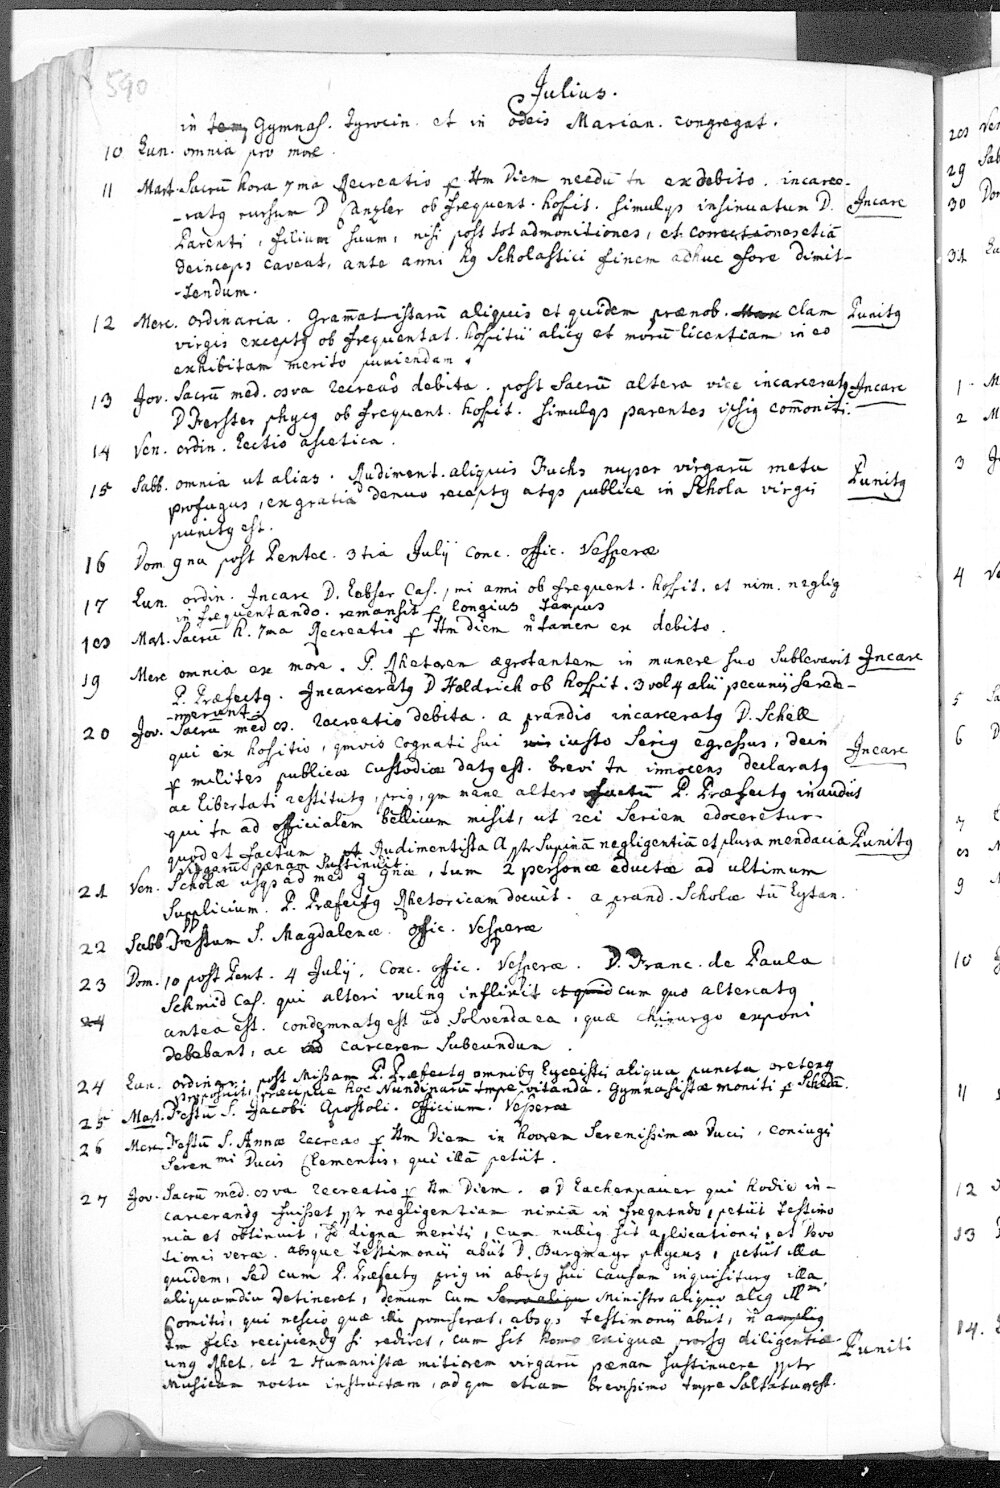 590
Julius.
in Gymnas. Tyrocin. et in odeis Marian. congregat.
10 Lun. omnia pro more.
11 Mart. Sacrū hora 7ma Recreatio p tm Diem needū tn ex debito. incarce-
-ratq rursum D Canzler ob frequent. hospit. simulqs insinuatum D. Incarc
Parenti, filium suum, nisi post tot admonitiones, et correctiones etiā
deinceps caveat, ante anni hq Scholastici finem adhuc fore dimit-
-tendum.
12 Merc. ordinaria. Gram̄atistarū aliquis et quidem prænob. clam Punitq
virgis exceptq ob frequentat. hospitii alicq et morū licentiam in eo
exhibitam merito puniendam.
13 Jov. Sacrū med. 8va recreao debita. post Sacrū altera vice incarceratq Incarc
D Ferster phycq ob frequent. hospit. simulqs parentes ipsiq com̄oniti.
14 Ven. ordin. Lectio ascetica.
15 Sabb. omnia ut alias. Rudiment. aliquis Fuchs nuper virgarū metu Punitq
profugus, ex gratia denuo receptq atqs publice in Schola virgis
punitq est.
16 Dom. 9na post Pentec. 3tia Julij conc. offic. Vesperæ
17 Lun. ordin. Incarc D. Labser Cas., mi anni ob frequent. hospit. et nim. neglig
in frequentando. remansit p longius tempus
18 Mart. Sacrū h. 7ma Recreatio p tm diem n̄ tamen ex debito.
19 Merc omnia ex more. P. Rhetorem ægrotantem in munere suo sublevavit Incarc
P. Præfectq. Incarceratq D Heldrich ob hospit. 3 vel 4 alii pecuniis se rede-
-merunt.
20 Jov. Sacrū med 8. recreatio debita. a prandio incarceratq D. Schell
qui ex hospitio, qmvis Cognati sui iusto seriq egressus, dein Incarc
p milites publicæ custodiæ datq est. brevi tn innocens declaratq
ac libertati restitutq, priq, qm mane altero P. Præfectq inaudiis
qui tn ad officialem bellicum misit, ut rei seriem edoceretur.
quod et factum. Rudimentista A ptr supinā negligentiā et plura mendacia Punitq
virgarū pænam sustinuit.
21 Ven. Scholæ usqs ad med 9 gnæ, tum 2 personæ eductæ ad ultimum
supplicium. P. Præfectq Rhetoricam docuit. a prand. Scholæ tū Lytan.
22 Sabb. Festum S. Magdalenæ. Offic. Vesperæ
23 Dom. 10 post Pent. 4 Julij. Conc. offic. Vesperæ. D. Franc. de Paula
Schmid Cas. qui alteri vulnq inflixit et quod cum quo altercatq
24 antea est. condemnatq est ad solvenda ea, quæ chirurgo exponi
debebant, ac ad carcerem subeundum.
24 Lun. ordinar. post Missam P. Præfectq omnibq Lyceistis aliqua puncta
proposuit, præcipue hoc Nundinarū tmpe vitanda. Gymnasistæ moniti p Schedā.
25 Mart. Festū S. Jacobi Apostoli. Officium. Vesperæ
26 Merc. Festū S. Annæ recreao p tm Diem in honrem Serenissimæ Ducis, coniugis
Seren mi Ducis Clementis, qui illā petiit.
27 Jov. Sacrū med. 8va recreatio p tm Diem. D Lachenpauer qui hodie in-
carcerandq fuisset ptr negligentiam nimiā in freqntndo, petiit testimo
nia et obtinuit, sed digna meritis, cum nullis sit aplicationis, et devo
tionis veræ. absque testimoniis abiit D. Burgmayr phycus, petiit illa
quidem, sed cum P. Præfectq priq in abitq sui causam inquisiturq illa
aliquamdiu detineret, demum cum Ministro aliquo alcq Illmi
Comitis, qui nescio quæ illi promiserat, absqs testimoniis abiit, n̄ ampliq
recipiendq si rediret, cum sit homo exiguæ prorsq diligentiæ.
unq Rhet. et 2 Humanistæ mitiorem virgarū pænam sustinuere pptr Puniti
Musicam noctu instructam, ad qm etiam brevissimo tmpre saltatum est.